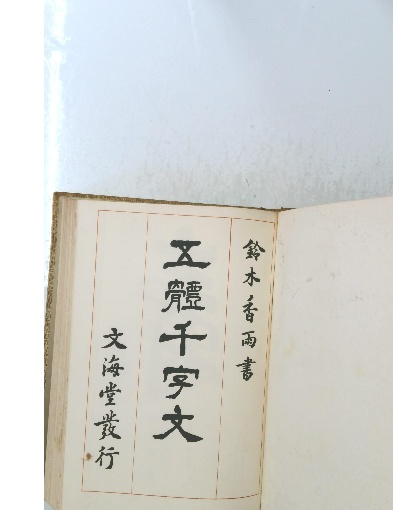 鈴木香雨書
五體千字文
文海堂發行